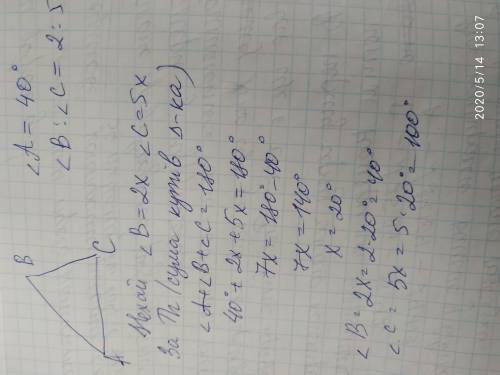 B
A
C
∠A = 40°
∠B : ∠C = 2 : 5
Нехай ∠B = 2x ∠C = 5x
За Тh (сума кутів Δ-ка)
∠A + ∠B + ∠C = 180°
40° + 2x + 5x = 180°
7x = 180° - 40°
7x = 140°
x = 20°
∠B = 2x = 2·20° = 40°
∠C = 5x = 5·20° = 100°
2020/5/14 13:07